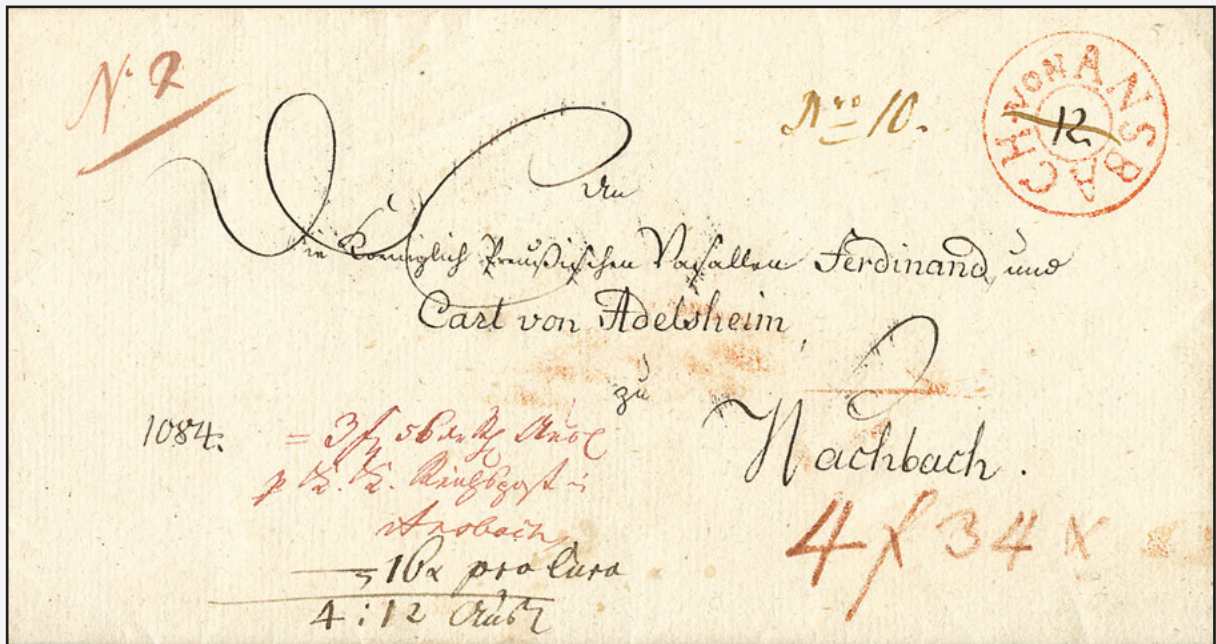 N: 2
Nro 10.
VON ANSBACH
12
An
die Koeniglich Preußischen Vasallen Ferdinand und
Carl von Adelsheim,
zu
Wachbach.
1084.
= 3 f 56
p K. K. Reichspost in
Ansbach
16x pro Cura
4:12 Ausl
4 f 34 x